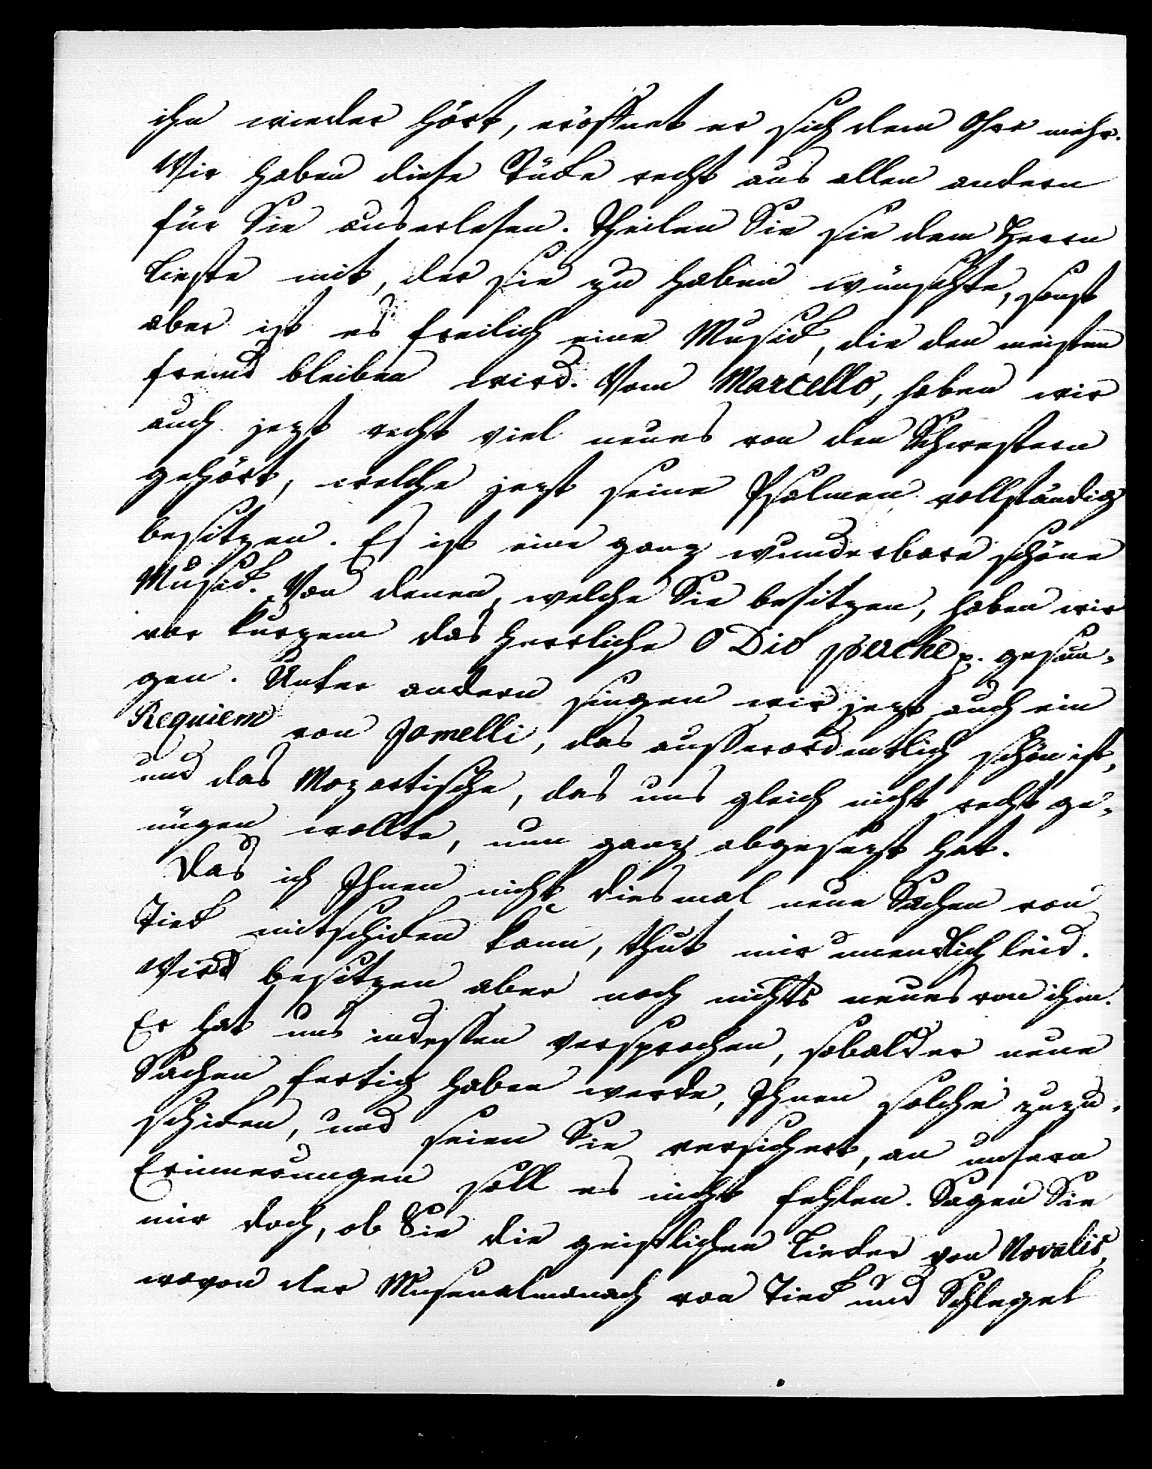 ihn wieder hört, eröffnet er sich dem Ohr mehr.
Wir haben diese Stücke recht aus allen andern
für Sie auserlesen. Theilen Sie sie dem Herrn
Lieste mit, der sie zu haben wünschte, sonst
aber ist es freilich eine Musick, die den meisten
fremd bleiben wird. Vom Marcello, haben wir
auch jezt recht viel neues von den Schwestern
gehört, welche jezt seine Psalmen vollständig
besitzen. Es ist eine ganz wunderbare schöne
Musick. Von denen, welche Sie besitzen, haben wir
vor kurzem das herrliche O Dio perche p. gesun-
gen. Unter andern singen wir jezt auch ein
Requiem von Jomelli, das ausserordentlich schön ist,
und das Mozartische, das uns gleich nicht recht ge-
nügen wollte, nun ganz abgesezt hat.
Das ich Ihnen nicht diesmal neue Sachen von
Tieck mitschicken kann, thut mir unendlich leid.
Wir besitzen aber noch nichts neues von ihm.
Er hat uns indessen versprochen, sobald er neue
Sachen fertig haben werde, Ihnen solche zuzu-
schicken, und seien Sie versichert, an unsern
Erinnerungen soll es nicht fehlen. Sagen Sie
mir doch, ob Sie die geistlichen Lieder von Novalis,
wovon der Musenalmanach von Tieck und Schlegel